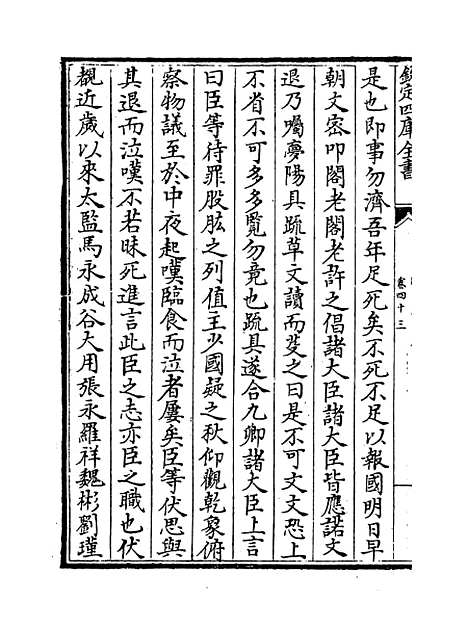 欽定四庫全書
卷四十三
是也即事勿濟吾年足死矣不死不足以報國明日早
朝文密叩閣老閣老許之倡諸大臣諸大臣皆應諾文
退乃囑夢陽具疏草文讀而芟之曰是不可文文恐上
不省不可多多覧勿竟也疏具遂合九卿諸大臣上言
曰臣等待罪股肱之列值主少國疑之秋仰觀乾象俯
察物議至於中夜起嘆臨食而泣者屢矣臣等伏思與
其退而泣嘆不若昧死進言此臣之志亦臣之職也伏
覩近歲以來太監馬永成谷大用張永羅祥魏彬劉瑾